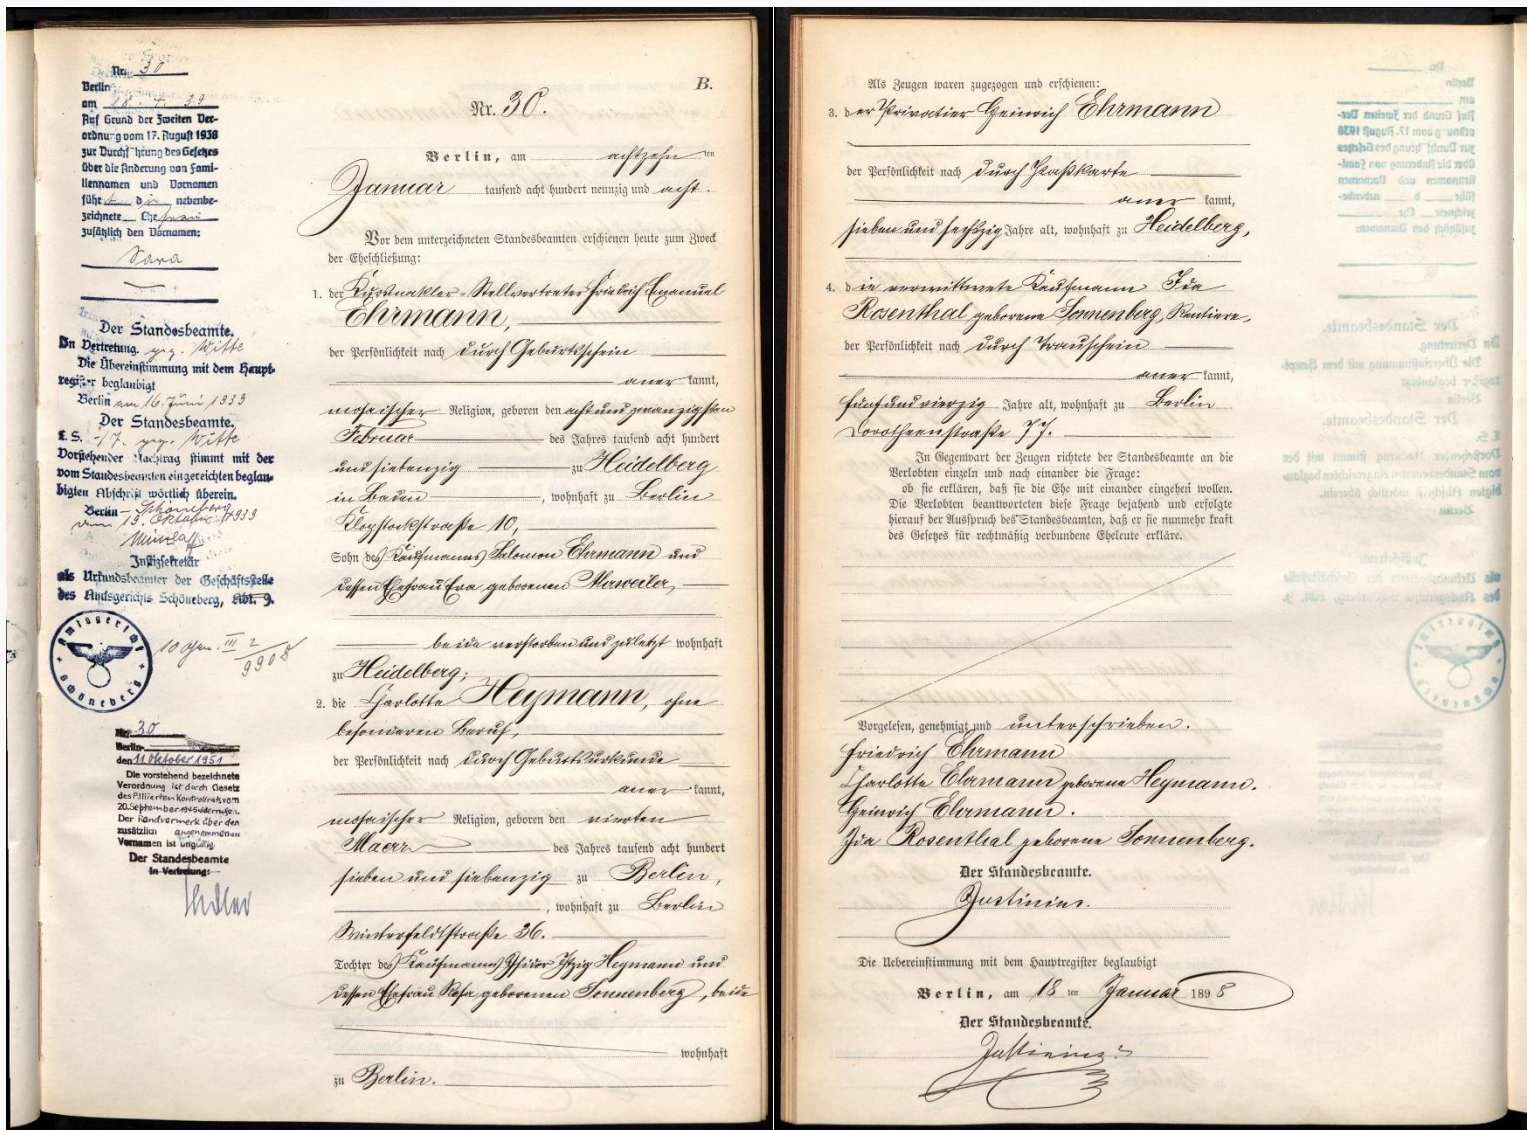 Nr. 30
Berlin
am 18. 4. 39
Auf Grund der Zweiten Ver-
ordnung vom 17. August 1938
zur Durchführung des Gesetzes
über die Änderung von Fami-
liennamen und Vornamen
führt die nebenbe-
zeichnete Ehefrau
zusätzlich den Vornamen:
Sara
Der Standesbeamte.
In Vertretung. gez. Witte
Die Übereinstimmung mit dem Haupt-
register beglaubigt
Berlin am 16. Juni 1939
Der Standesbeamte.
L. S. gez. Witte
Vorstehender Nachtrag stimmt mit der
vom Standesbeamten eingereichten beglau-
bigten Abschrift wörtlich überein.
Berlin-Schöneberg
den 19. Oktober 1939
Justizsekretär
als Urkundsbeamter der Geschäftsstelle
des Amtsgerichts Schöneberg, Abt. 9.
Amtsgericht Schöneberg
10 Gen. III 2
9908
Nr. 30
Berlin-
den 11 Oktober 1951
Die vorstehend bezeichnete
Verordnung ist durch Gesetz
des Alliierten Kontrollrats vom
20. September 1945 widerrufen.
Der Randvermerk über den
zusätzlich angenommenen
Vornamen ist ungültig
Der Standesbeamte
In Vertretung:
B.
Nr. 30.
Berlin, am achtzehn ten
Januar tausend acht hundert neunzig und acht.
Vor dem unterzeichneten Standesbeamten erschienen heute zum Zweck
der Eheschließung:
1. der Kursmakler-Stellvertreter Friedrich Emanuel
Ehrmann,
der Persönlichkeit nach durch Geburtsschein
aner kannt,
mosaischer Religion, geboren den achtundzwanzigsten
Februar des Jahres tausend acht hundert
und siebenzig zu Heidelberg
in Baden, wohnhaft zu Berlin
Klopstockstraße 10,
Sohn des Kaufmanns Salomon Ehrmann und
dessen Ehefrau Eva geborenen Ahrweiler,
beide verstorben und zuletzt wohnhaft
zu Heidelberg;
2. die Charlotte Heymann, ohne
besonderen Beruf,
der Persönlichkeit nach durch Geburtsurkunde
aner kannt,
mosaischer Religion, geboren den vierten
Maerz des Jahres tausend acht hundert
sieben und siebenzig zu Berlin,
wohnhaft zu Berlin
Winterfeldtstraße 26.
Tochter des Kaufmanns Isidor Itzig Heymann und
dessen Ehefrau Rosa geborenen Sonnenberg, beide
wohnhaft
zu Berlin.
Als Zeugen waren zugezogen und erschienen:
3. der Privatier Heinrich Ehrmann
der Persönlichkeit nach durch Paßkarte
aner kannt,
sieben und sechszig Jahre alt, wohnhaft zu Heidelberg,
4. die verwittwete Kaufmann Ida
Rosenthal geborene Sonnenberg, Rentiere,
der Persönlichkeit nach durch Trauschein
aner kannt,
fünfundvierzig Jahre alt, wohnhaft zu Berlin
Dorotheenstraße 77.
In Gegenwart der Zeugen richtete der Standesbeamte an die
Verlobten einzeln und nach einander die Frage:
ob sie erklären, daß sie die Ehe mit einander eingehen wollen.
Die Verlobten beantworteten diese Frage bejahend und erfolgte
hierauf der Ausspruch des Standesbeamten, daß er sie nunmehr kraft
des Gesetzes für rechtmäßig verbundene Eheleute erkläre.
Vorgelesen, genehmigt und unterschrieben.
Friedrich Ehrmann
Charlotte Ehrmann geborene Heymann.
Heinrich Ehrmann.
Ida Rosenthal geborene Sonnenberg.
Der Standesbeamte.
Justinius.
Die Uebereinstimmung mit dem Hauptregister beglaubigt
Berlin, am 18 ten Januar 1898
Der Standesbeamte.
Justinius